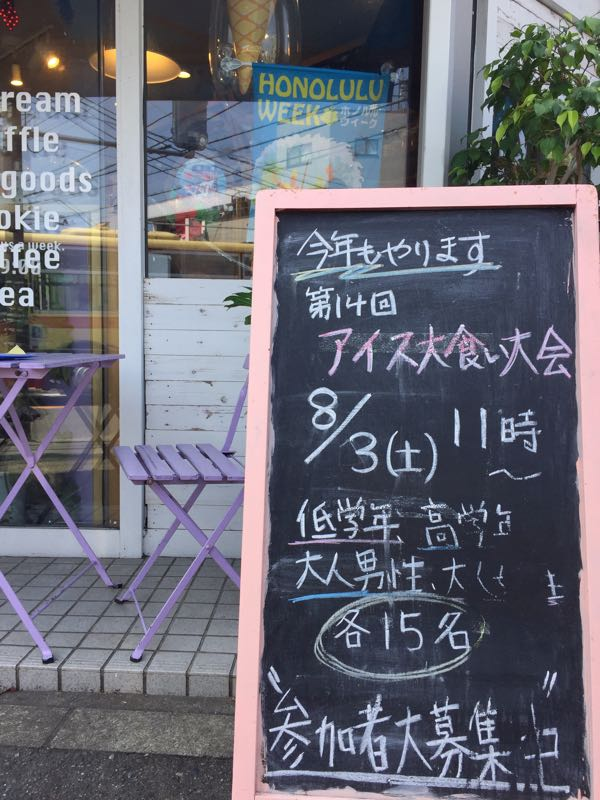 HONOLULU
WEEK
ホノルル
ウィーク
ream
ffle
goods
okie
us a week.
ffee
ea
今年もやります
第14回
アイス大食い大会
8/3(土) 11時〜
低学年、高学年
大人男性、大人
各15名
"参加者大募集"